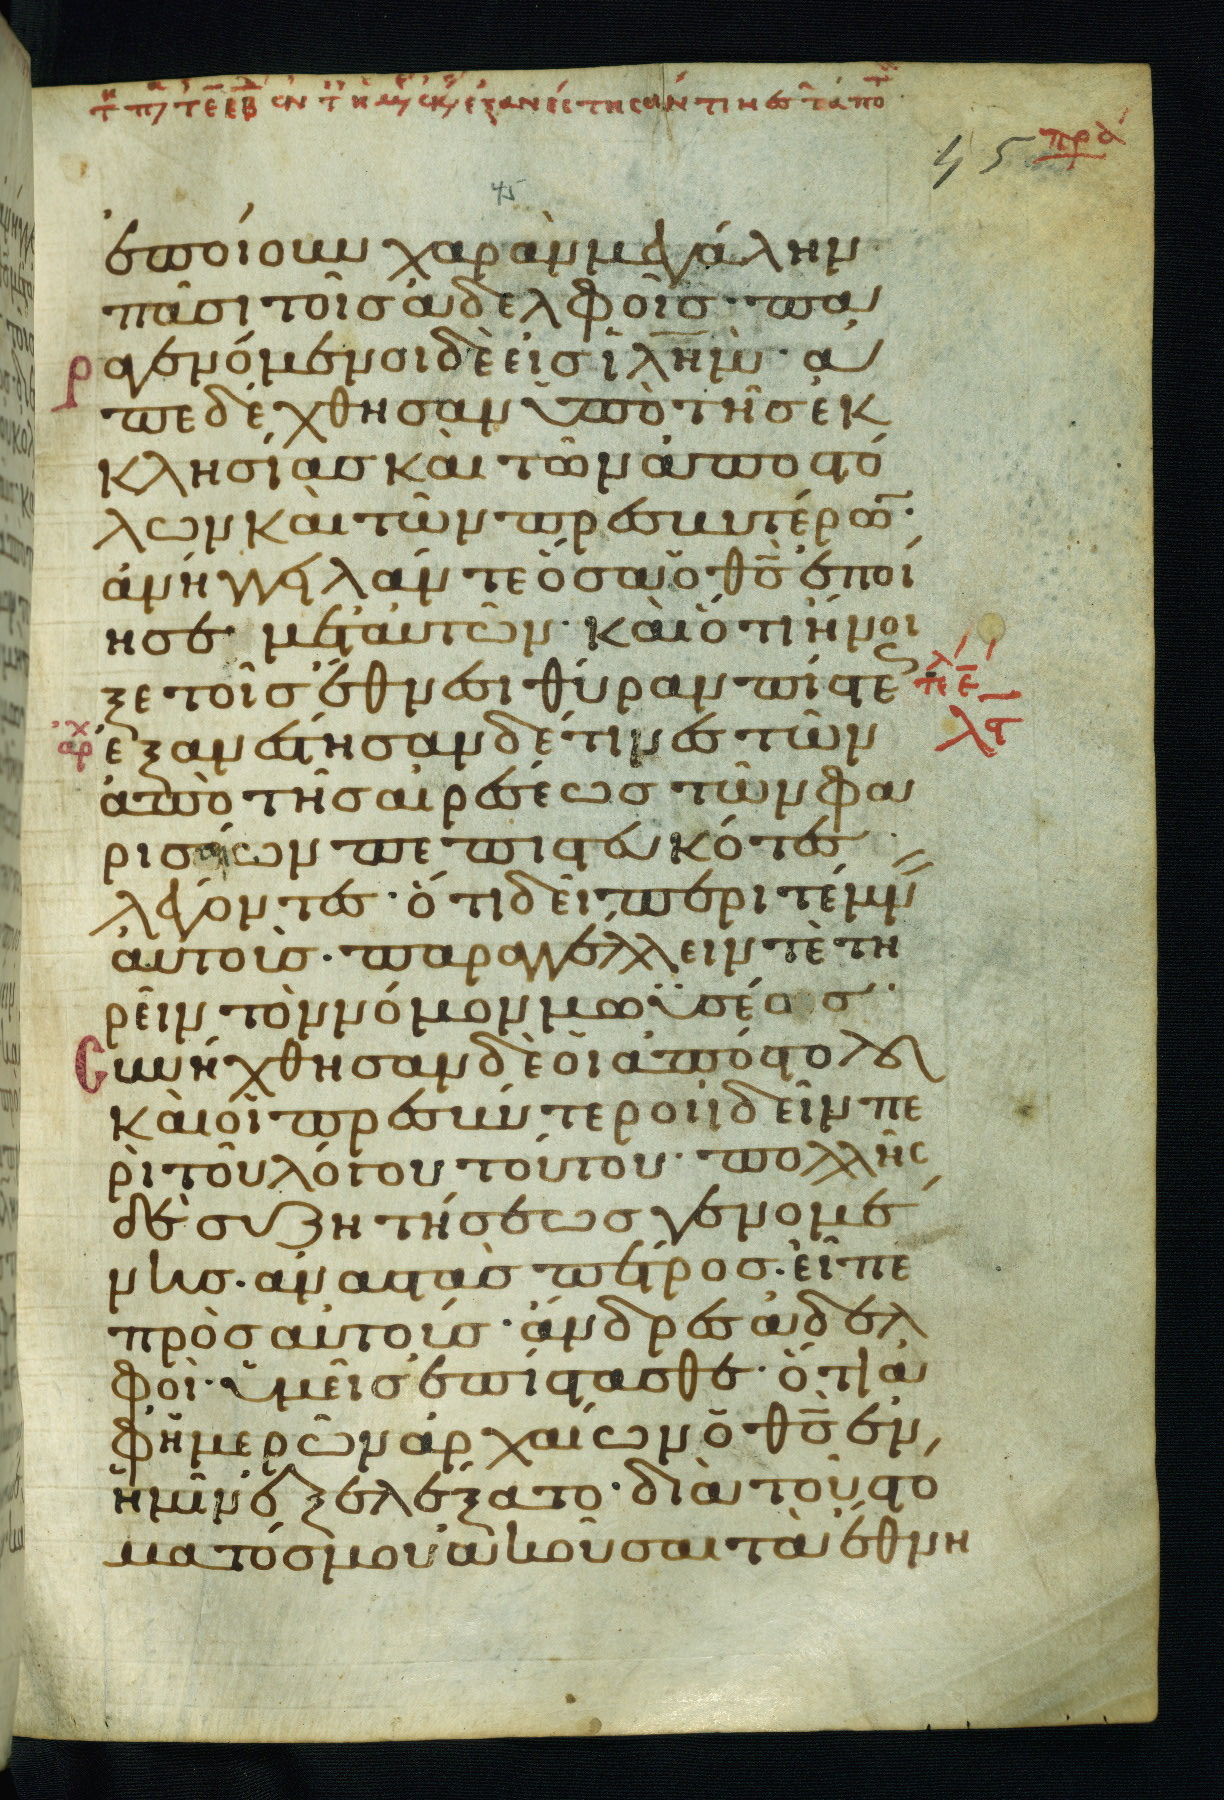 45
πρα
45
ἐποίουν χαρὰν μεγάλην
πᾶσι τοῖς ἀδελφοῖς· πα
ραγενόμενοι δὲ εἰς ἰλῆμ· ἀ
πεδέχθησαν ὑπὸ τῆς ἐκ
κλησίας καὶ τῶν ἀποστό
λων καὶ τῶν πρεσβυτέρων·
ἀνήγγειλάν τε ὅσα ὁ θσ ἐποί
ησε μετ' αὐτῶν· καὶ ὅτι ἤνοι
ξε τοῖς ἔθνεσι θύραν πίστεως
ἐξανέστησαν δέ τινες τῶν
ἀπὸ τῆς αἱρέσεως τῶν φα
ρισαίων πεπιστευκότες
λέγοντες· ὅτι δεῖ περιτέμνειν
αὐτοὺς· παραγγέλλειν τὲ τη
ρεῖν τὸν νόμον μωϋσέως
Συνήχθησαν δὲ οἱ ἀπόστολοι
καὶ οἱ πρεσβύτεροι ἰδεῖν πε
ρὶ τοῦ λόγου τούτου· πολλῆς
δὲ συζητήσεως γενομέ
νης· ἀναστὰς πέτρος· εἶπε
πρὸς αὐτούς· ἄνδρες ἀδελ
φοὶ· ὑμεῖς ἐπίστασθε· ὅτι ἀ
φ' ἡμερῶν ἀρχαίων ὁ θσ ἐν
ἡμῖν ἐξελέξατο· διὰ τοῦ στό
ματός μου ἀκοῦσαι τὰ ἔθνη